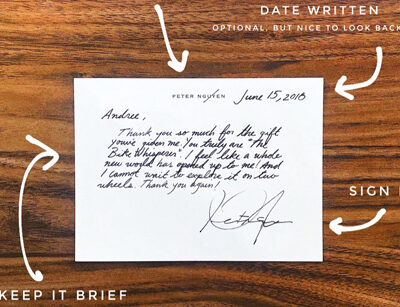 DATE WRITTEN
OPTIONAL, BUT NICE TO LOOK BACK
PETER NGUYEN
June 15, 2018
Andree,
Thank you so much for the gift
you've given me. You truly are "The
Bike Whisperer". I feel like a whole
new world has opened up to me! And
I cannot wait to explore it on two
wheels. Thank you again!
SIGN
KEEP IT BRIEF